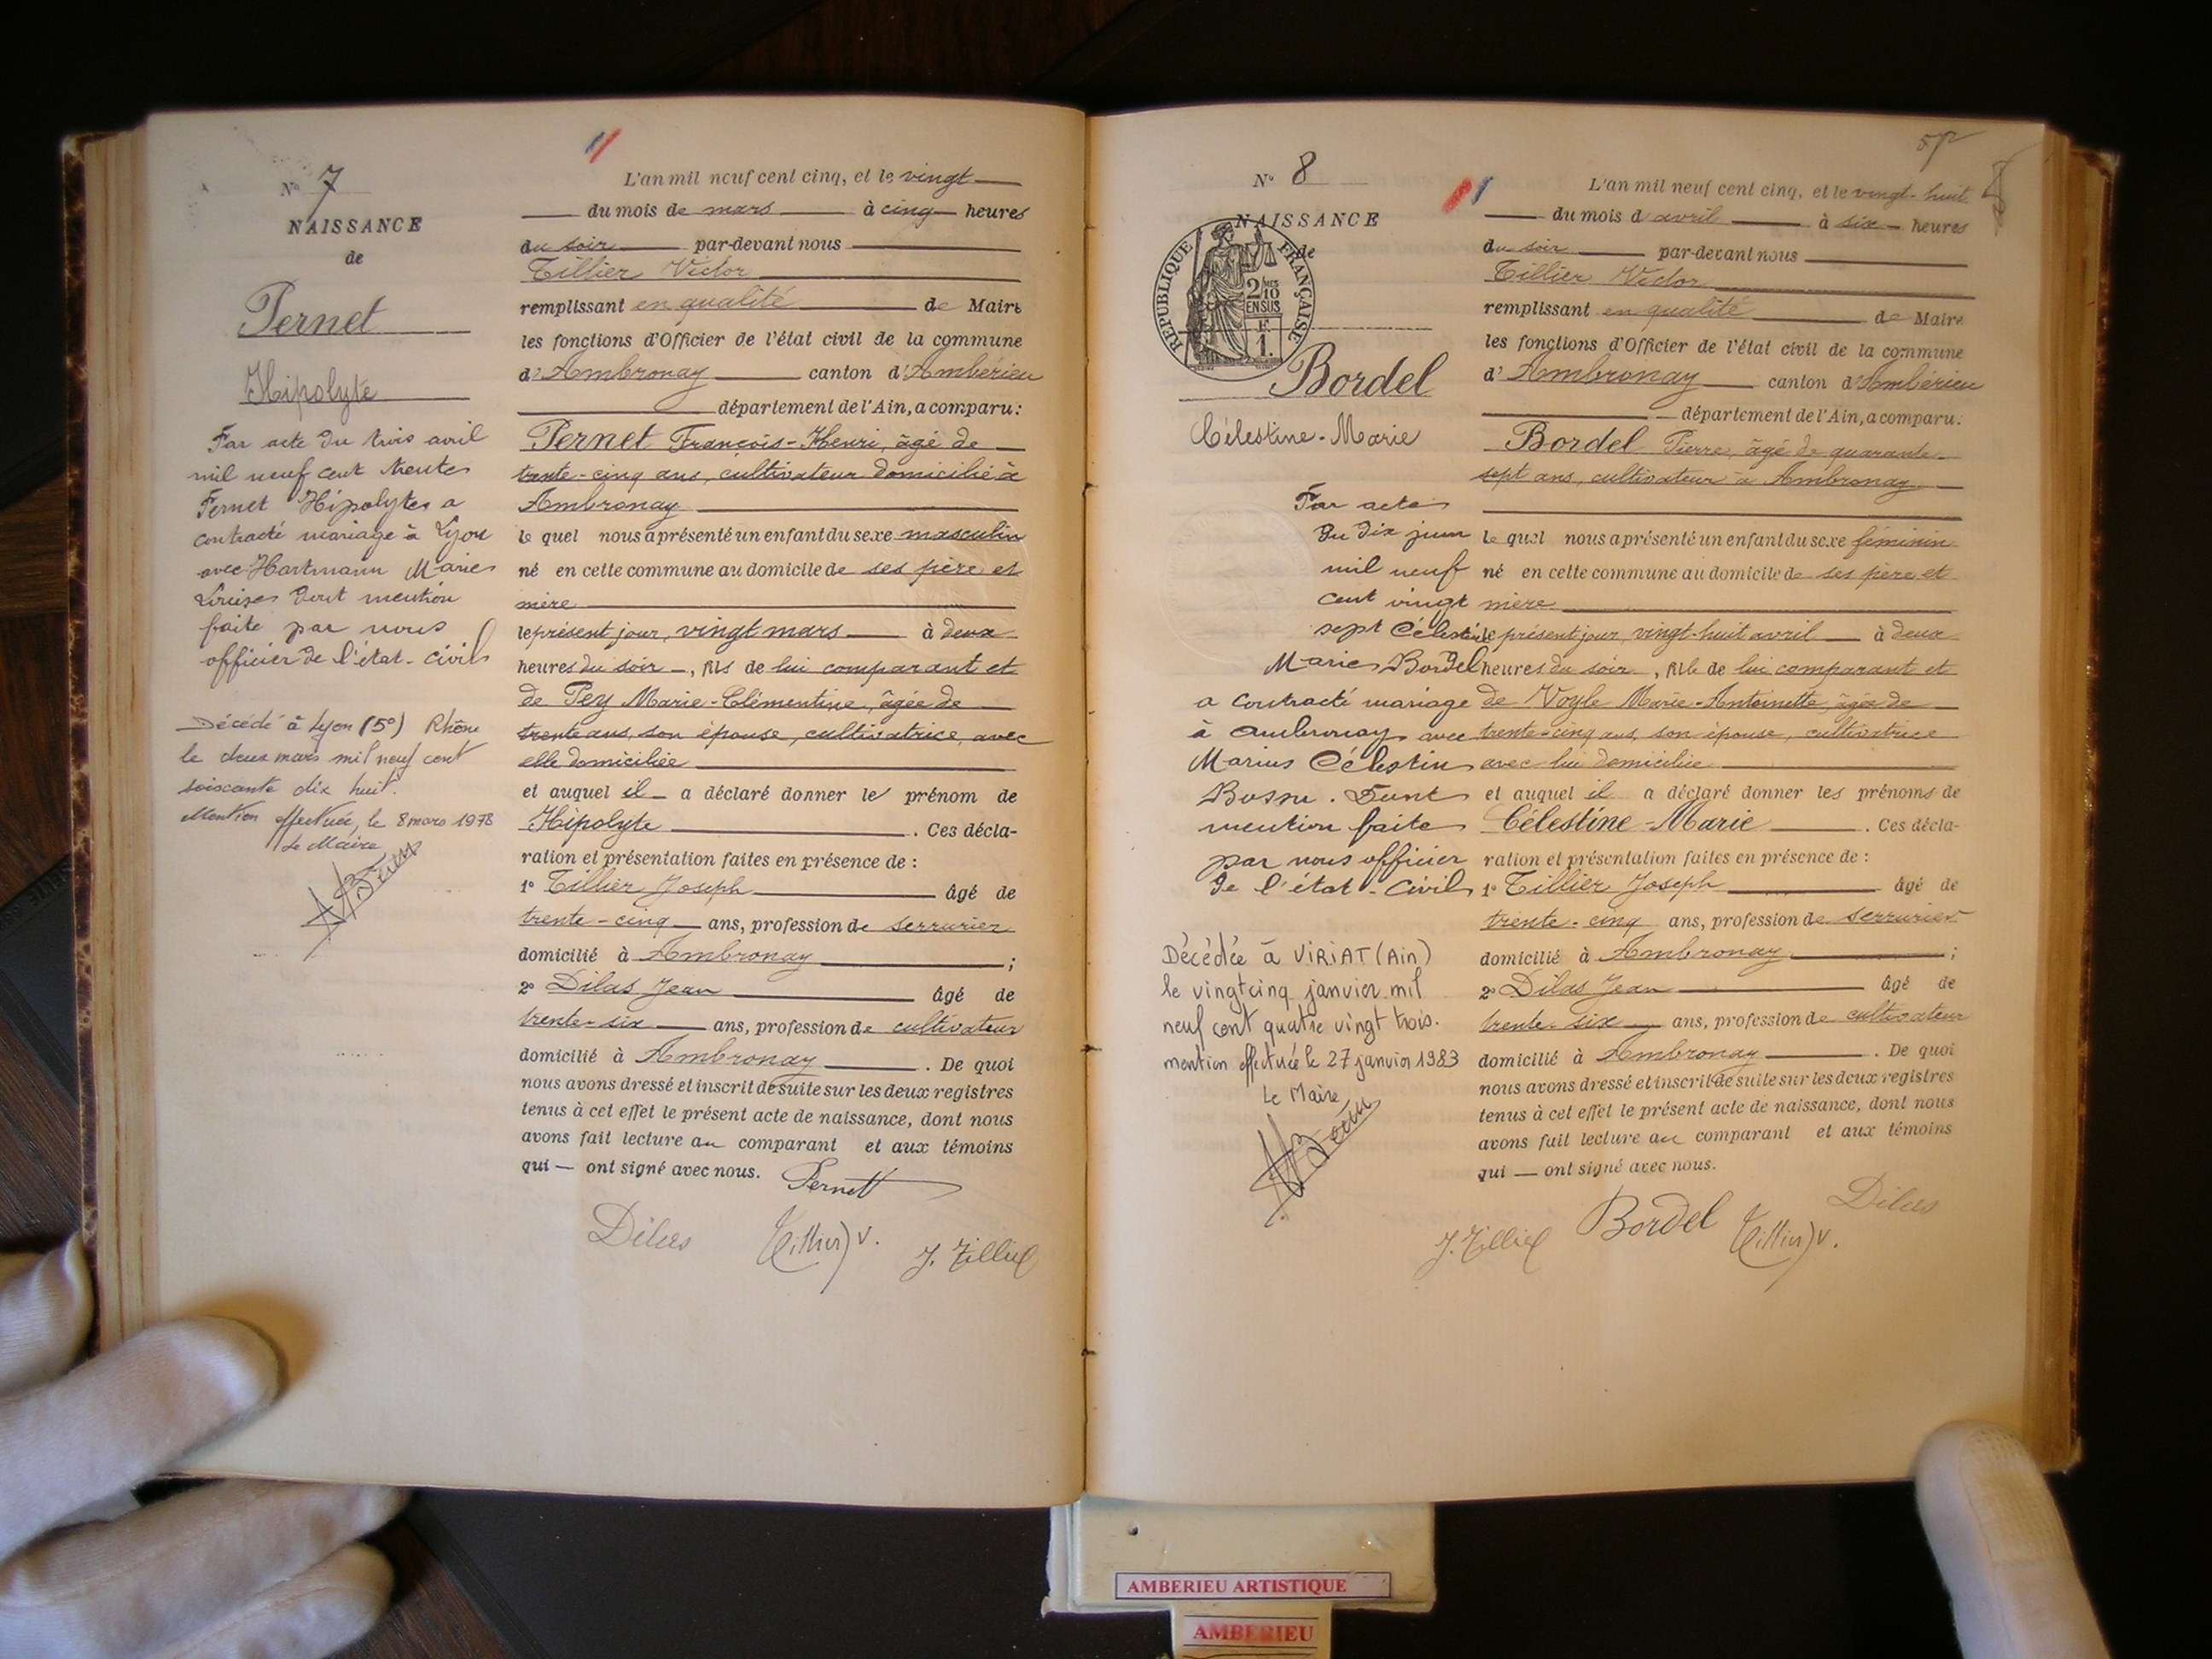 N° 7
NAISSANCE
de
Pernet
Hipolyte
Par acte du trois avril
mil neuf cent trente
Pernet Hipolyte a
contracté mariage à Lyon
avec Hartmann Marie
Louise Dont mention
faite par nous
officier de l'état-civil
Décédé à Lyon (5e) Rhône
le deux mars mil neuf cent
soixante dix huit.
Mention effectuée, le 8 mars 1978
Le Maire
L'an mil neuf cent cinq, et le vingt
du mois de mars à cinq heures
du soir par-devant nous
Tillier Victor
remplissant en qualité de Maire
les fonctions d'Officier de l'état civil de la commune
d'Ambronay canton d'Ambérieu
département de l'Ain, a comparu:
Pernet François-Henri, âgé de
trente-cinq ans, cultivateur domicilié à
Ambronay
le quel nous a présenté un enfant du sexe masculin
né en cette commune au domicile de ses père et
mère
le présent jour, vingt mars à deux
heures du soir, fils de lui comparant et
de Pey Marie-Clémentine, âgée de
trente ans, son épouse, cultivatrice, avec
elle domiciliée
et auquel il a déclaré donner le prénom de
Hipolyte. Ces décla-
ration et présentation faites en présence de :
1° Tillier Joseph âgé de
trente-cinq ans, profession de serrurier
domicilié à Ambronay ;
2° Dilas Jean âgé de
trente-six ans, profession de cultivateur
domicilié à Ambronay. De quoi
nous avons dressé et inscrit de suite sur les deux registres
tenus à cet effet le présent acte de naissance, dont nous
avons fait lecture au comparant et aux témoins
qui — ont signé avec nous. Pernet
Dilas Tillier V. J. Tillier
N° 8
NAISSANCE
de
REPUBLIQUE FRANÇAISE
2/10 EN SUS
F 1.
Bordel
Célestine-Marie
Par acte
du dix juin
mil neuf
cent vingt
sept Célestine
Marie Bordel
a contracté mariage
à Ambronay avec
Marius Célestin
Bossu. Dont
mention faite
par nous officier
de l'état-civil
Décédée à VIRIAT (Ain)
le vingt cinq janvier mil
neuf cent quatre vingt trois.
mention effectuée le 27 janvier 1983
Le Maire
L'an mil neuf cent cinq, et le vingt-huit
du mois d'avril à six heures
du soir par-devant nous
Tillier Victor
remplissant en qualité de Maire
les fonctions d'Officier de l'état civil de la commune
d'Ambronay canton d'Ambérieu
département de l'Ain, a comparu.
Bordel Pierre, âgé de quarante-
sept ans, cultivateur à Ambronay
le quel nous a présenté un enfant du sexe féminin
né en cette commune au domicile de ses père et
mère
le présent jour, vingt-huit avril à deux
heures du soir, fille de lui comparant et
de Vogle Marie-Antoinette, âgée de
trente-cinq ans, son épouse, cultivatrice
avec lui domiciliée
et auquel il a déclaré donner les prénoms de
Célestine-Marie. Ces décla-
ration et présentation faites en présence de :
1° Tillier Joseph âgé de
trente-cinq ans, profession de serrurier
domicilié à Ambronay ;
2° Dilas Jean âgé de
trente-six ans, profession de cultivateur
domicilié à Ambronay. De quoi
nous avons dressé et inscrit de suite sur les deux registres
tenus à cet effet le présent acte de naissance, dont nous
avons fait lecture au comparant et aux témoins
qui — ont signé avec nous.
J. Tillier Bordel Tillier V. Dilas
AMBERIEU ARTISTIQUE
AMBERIEU